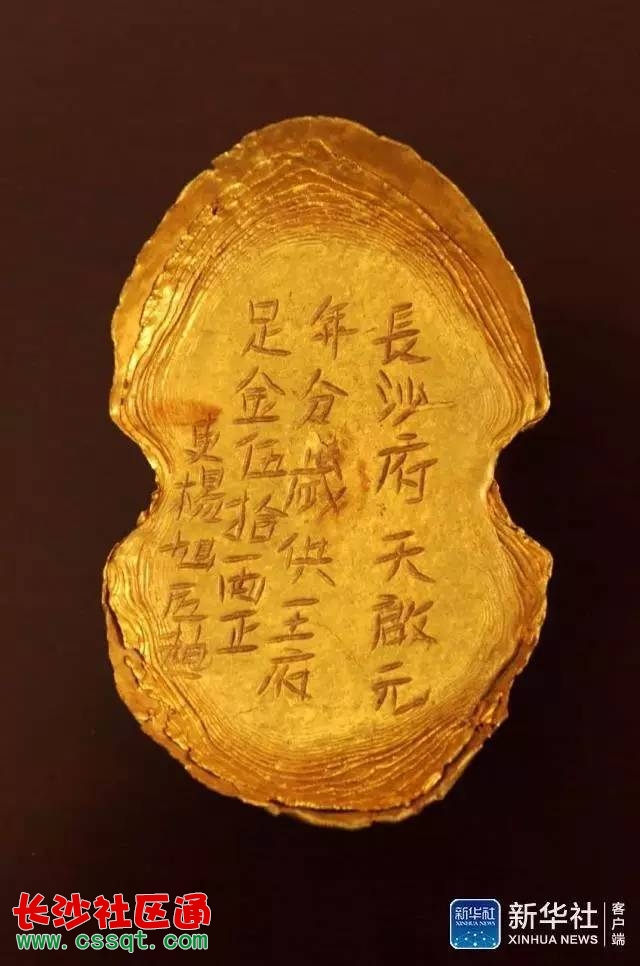 長沙府天啟元
年分歲供王府
足金伍拾両正
吏楊旭匠趙
长沙社区通
www.cssqt.com
新华社
XINHUA NEWS
客户端